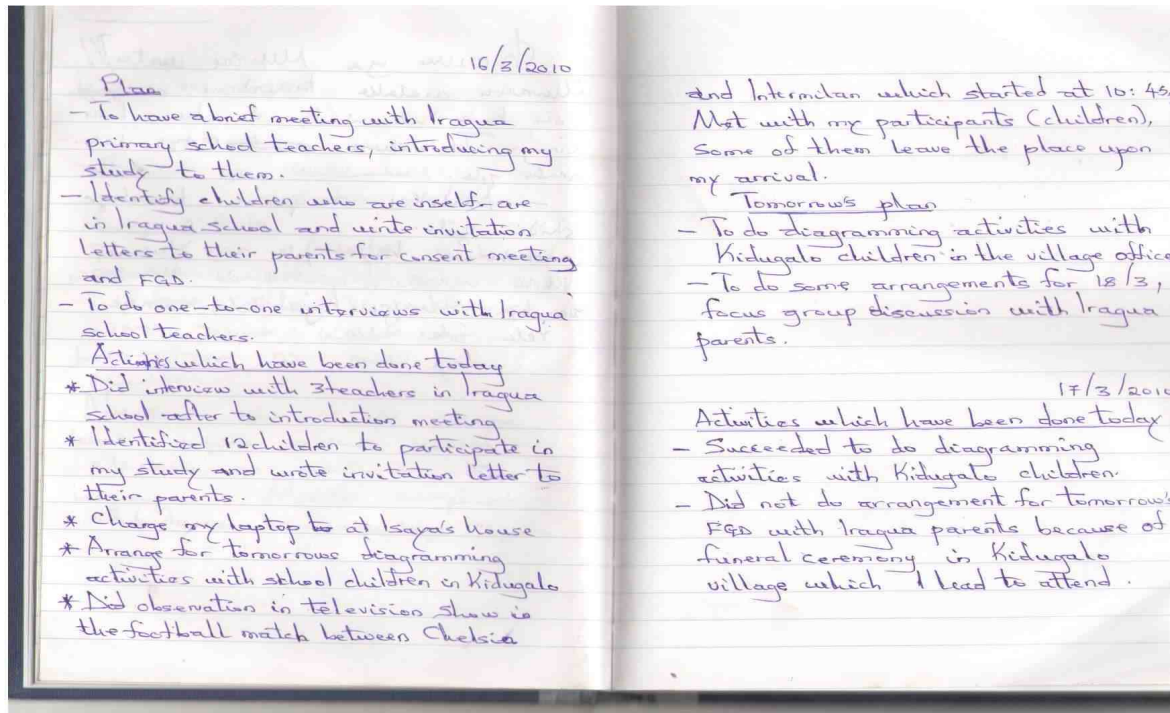 16/3/2010
Plan
- To have a brief meeting with Iragua
primary school teachers, introducing my
study to them.
- Identify children who are inself-are
in Iragua school and write invitation
letters to their parents for consent meeting
and FGD.
- To do one-to-one interviews with Iragua
school teachers.
Activities which have been done today
* Did interview with 3teachers in Iragua
school after to introduction meeting
* Identified 12children to participate in
my study and wrote invitation letter to
their parents.
* Charge my laptop to at Isaya's house
* Arrange for tomorrows diagramming
activities with school children in Kidugalo
* Did observation in television show in
the football match between Chelsia
and Intermilan which started at 10:45,
Met with my participants (children),
some of them leave the place upon
my arrival.
Tomorrow's plan
- To do diagramming activities with
Kidugalo children in the village office
- To do some arrangements for 18/3,
focus group discussion with Iragua
parents.
17/3/2010
Activities which have been done today
- Succeeded to do diagramming
activities with Kidugalo children.
- Did not do arrangement for tomorrow's
FGD with Iragua parents because of
funeral ceremony in Kidugalo
village which I had to attend.